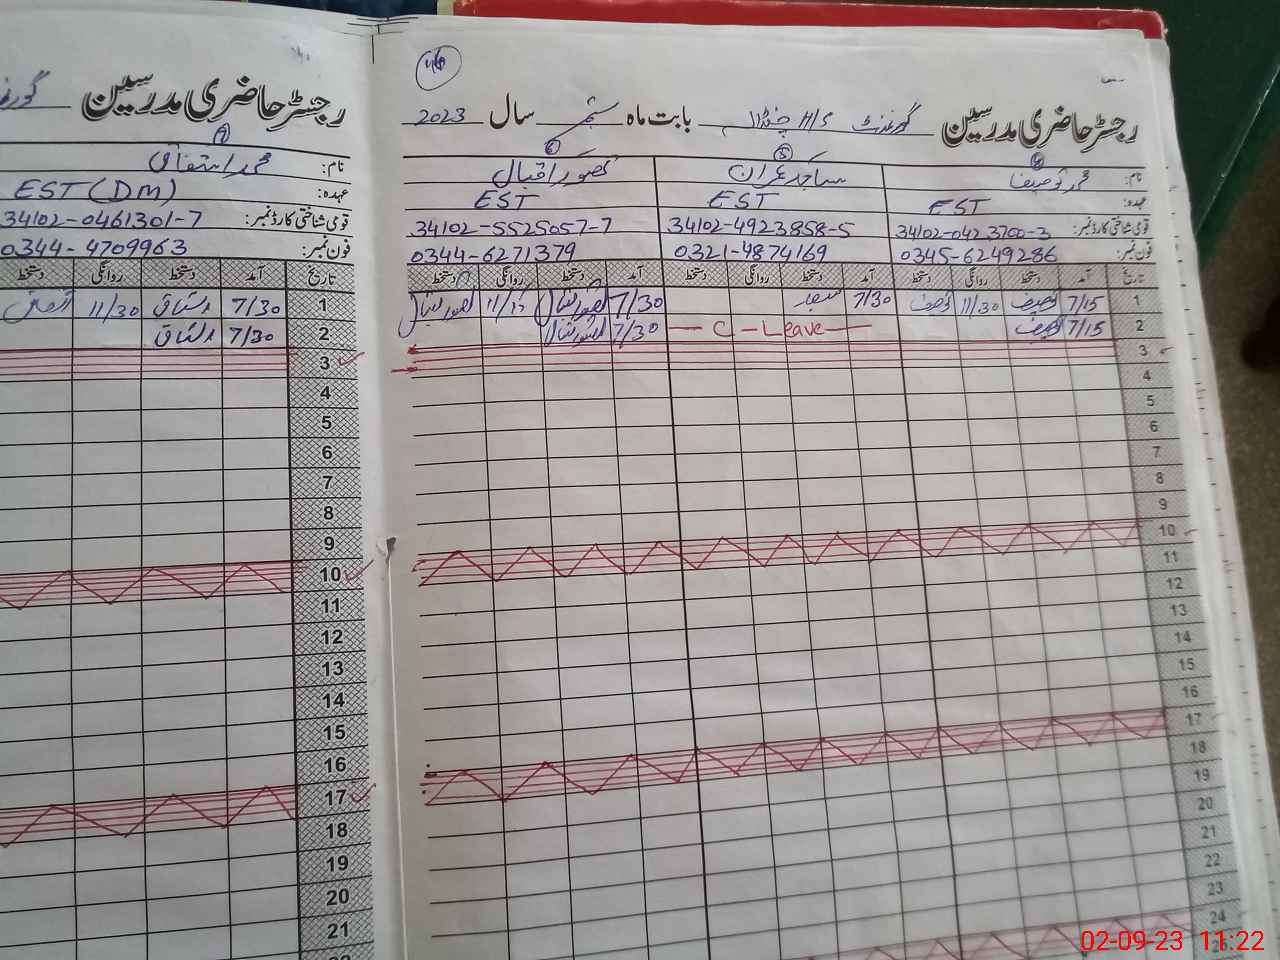 رجسٹر حاضری مدرسین گورنمنٹ H/S بابت ماہ ستمبر سال 2023
نام: محمد توصیف ساجد عمران تصور اقبال
عہدہ: EST EST EST
قومی شناختی کارڈ نمبر: 34102-0423700-3 34102-4923858-5 34102-5525057-7
فون نمبر: 0345-6249286 0321-4874169 0344-6271379
تاریخ آمد دستخط روانگی دستخط آمد دستخط روانگی دستخط آمد دستخط روانگی دستخط
1 7/15 توصیف 11/30 توصیف 7/30 7/30 تصور اقبال تصور اقبال
2 7/15 توصیف C-Leave 7/30 تصور اقبال
3
4
5
6
7
8
9
10
11
12
13
14
15
16
17
18
19
20
21
22
23
24
رجسٹر حاضری مدرسین
نام: محمد اشتیاق
عہدہ: EST (DM)
قومی شناختی کارڈ نمبر: 34102-0461301-7
فون نمبر: 0344-4709963
تاریخ آمد دستخط روانگی دستخط
1 7/30 اشتیاق 11/30 اشتیاق
2 7/30 اشتیاق
3
4
5
6
7
8
9
10
11
12
13
14
15
16
17
18
19
20
21
02-09-23 11:22